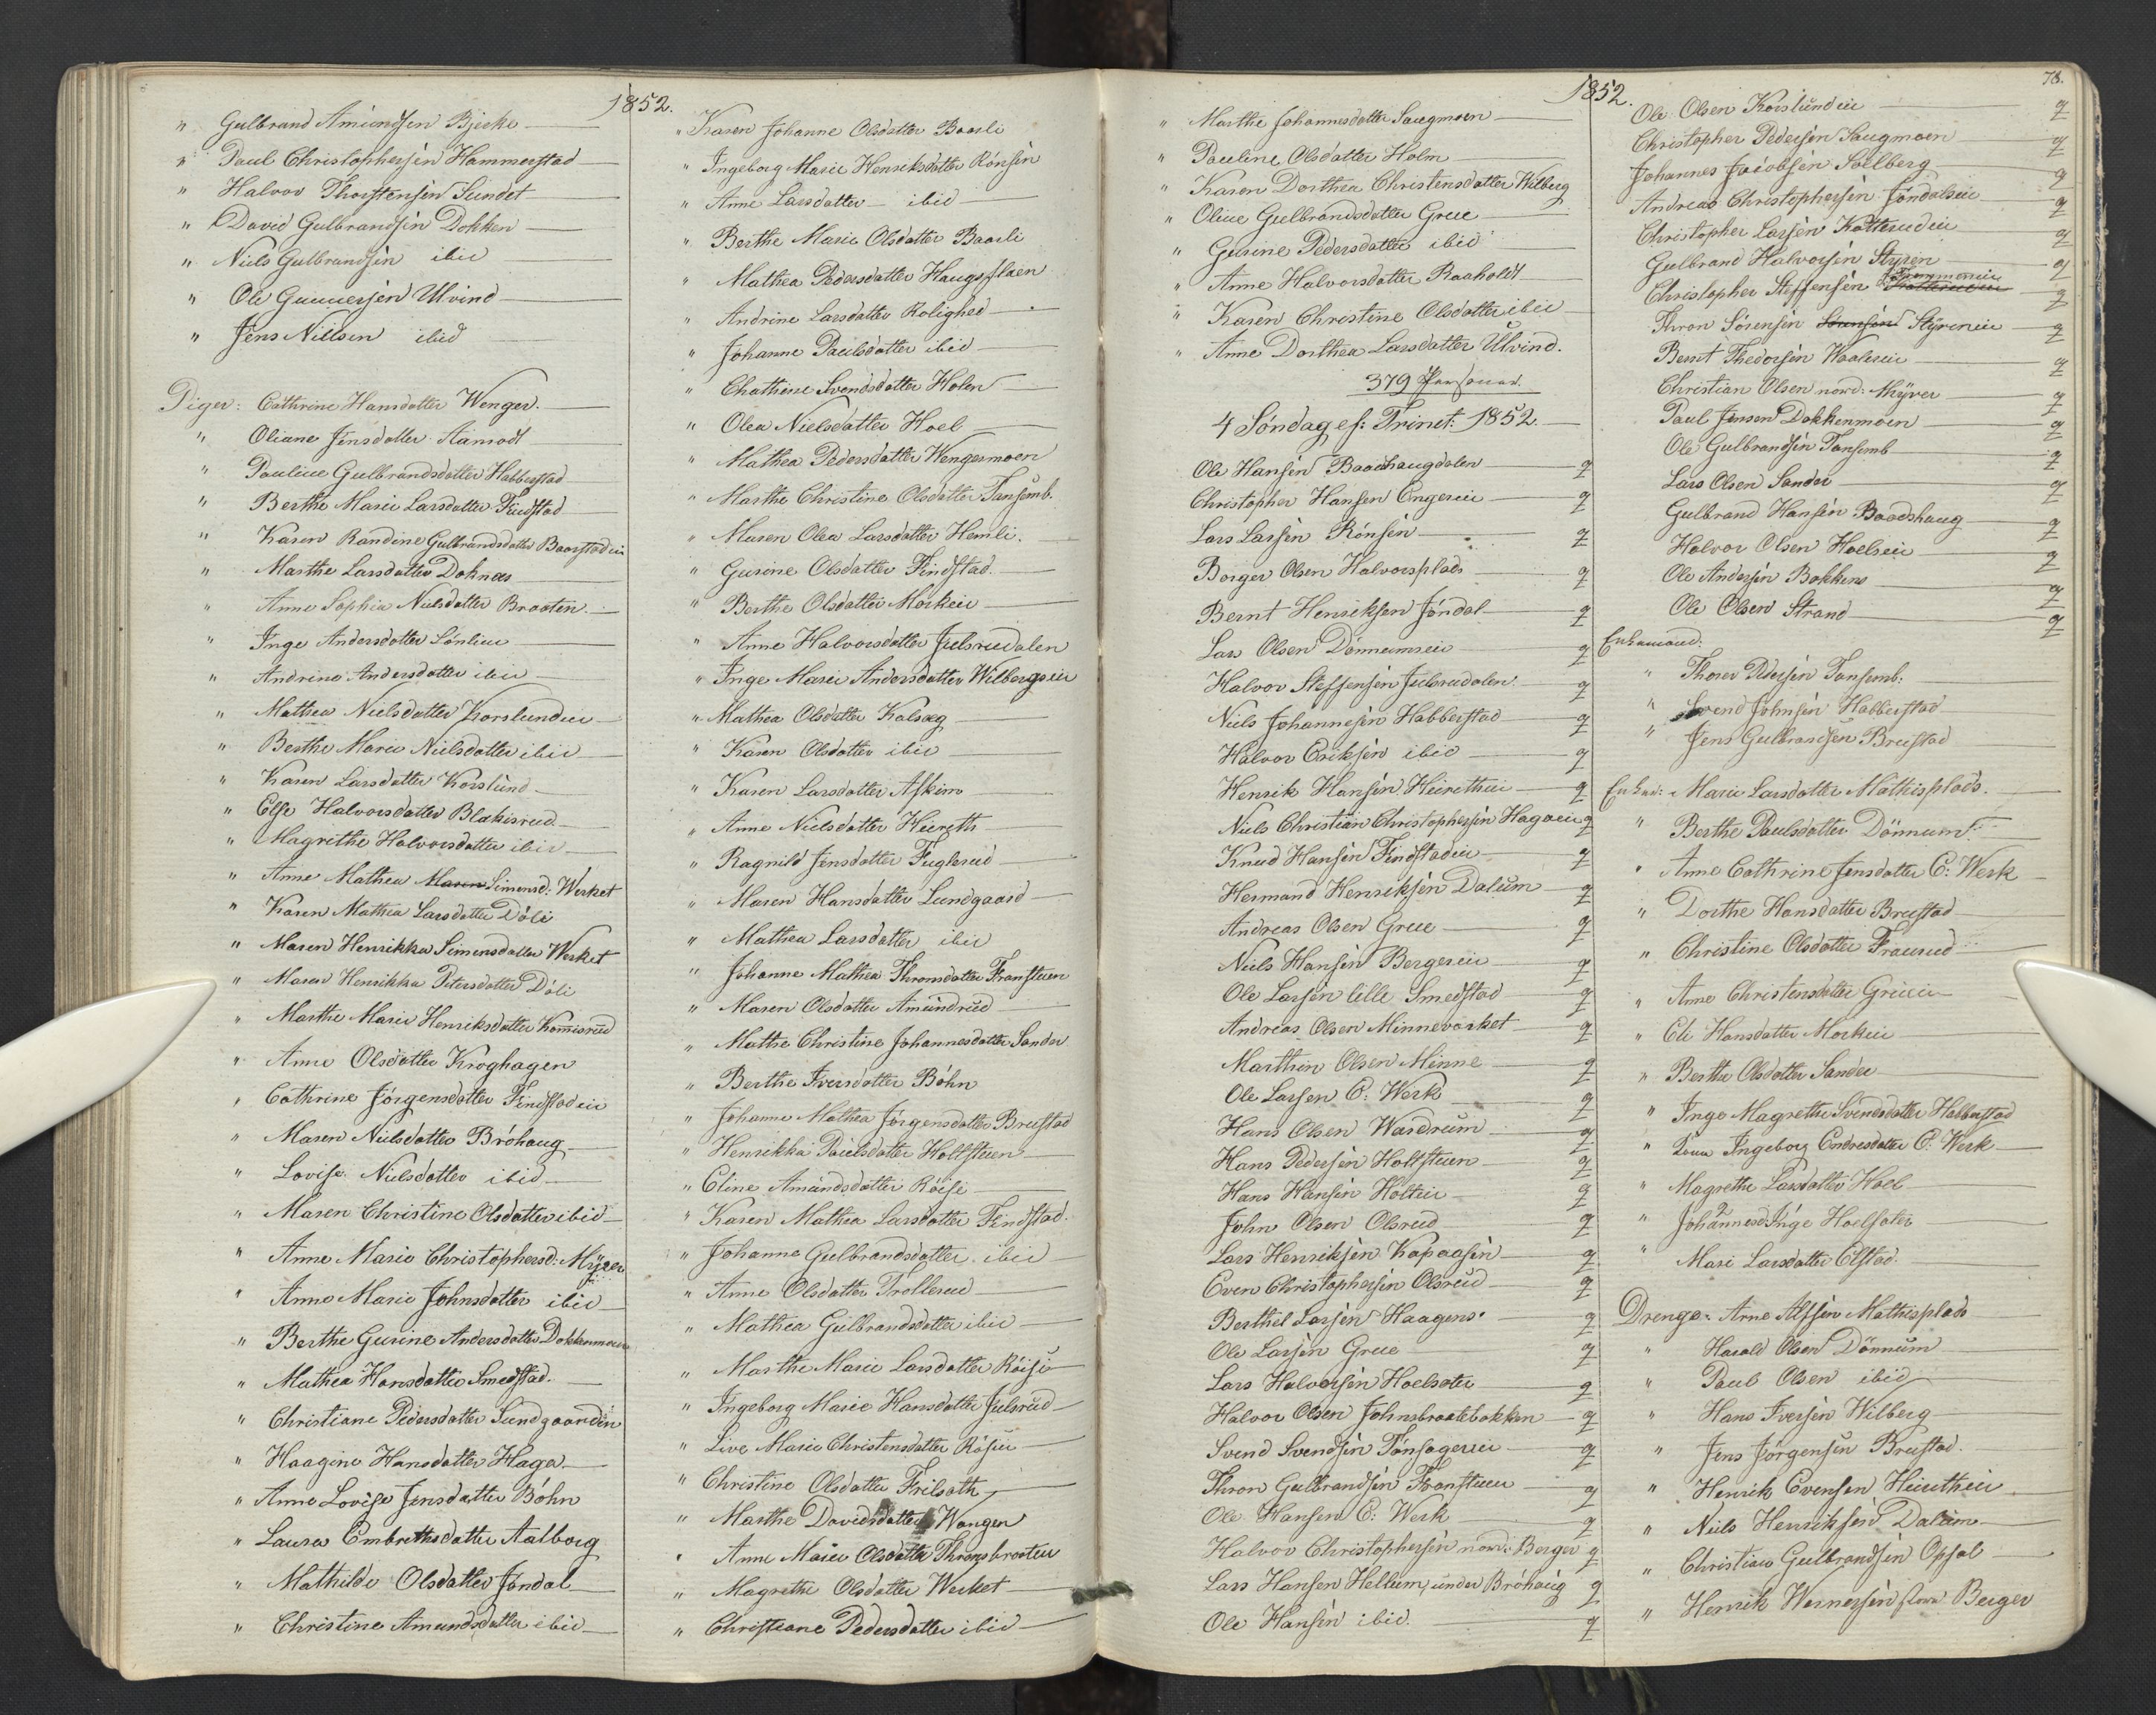 1852.
" Gulbrand Amundsen Bjerke
" Paul Christophersen Hammerstad
" Halvor Thorstensen Sundet
" David Gulbrandsen Dokken
" Niels Gulbrandsen ibid
" Ole Gunnersen Ulvind
" Jens Nilssen ibid
Piger: Cathrine Hansdatter Wenger.
" Oliane Jensdatter Aamodt
" Pauline Gulbrandsdatter Habberstad
" Berthe Marie Larsdatter Findstad
" Karen Randine Gulbrandsdatter Baarstadeie
" Marthe Larsdatter Doknæs
" Anne Sophia Nielsdatter Braaten
" Inge Andersdatter Lönlien
" Andrine Andersdatter ibid
" Mathea Nielsdatter Korslundeie
" Berthe Marie Nielsdatter ibid
" Karen Larsdatter Korslund
" Else Halvorsdatter Blakisrud
" Magrethe Halvorsdatter ibid
" Anne Mathea Maren Simensd: Werket
" Karen Mathea Larsdatter Döli
" Maren Henrikka Simensdatter Werket
" Maren Henrikka Petersdatter Döli
" Marthe Marie Henriksdatter Komisrud
" Anne Olsdatter Kroghagen
" Cathrine Jörgensdatter Findstadeie
" Maren Nielsdatter Bröhaug
" Lovise Nielsdatter ibid
" Maren Christine Olsdatter ibid
" Anne Marie Christophersd: Myrer
" Anne Marie Johnsdatter ibid
" Berthe Gurine Andersdatter Dokkenmoen
" Mathea Hansdatter Smedstad.
" Christiane Pedersdatter Sundgaarden
" Haagine Hansdatter Haga
" Anne Lovise Jensdatter Böhn
" Laura Embrethsdatter Aalborg
" Mathilde Olsdatter Jöndal
" Christine Amundsdatter ibid
" Karen Johanne Olsdatter Baarli
" Ingeborg Marie Henriksdatter Rönsen
" Anne Larsdatter ibid
" Berthe Marie Olsdatter Baarli
" Mathea Pedersdatter Haugsflaen
" Andrine Larsdatter Rolighed
" Johanne Paulsdatter ibid
" Chathrine Svendsdatter Holen
" Olea Nielsdatter Hoel
" Mathea Pedersdatter Wengermoen
" Marthe Christine Olsdatter Tansemb.
" Maren Olea Larsdatter Hemli.
" Gurine Olsdatter Findstad.
" Berthe Olsdatter Morkeie
" Anne Halvorsdatter Julsrudalen
" Inge Marie Andersdatter Wilbergseie
" Mathea Olsdatter Kalsæg
" Karen Olsdatter ibid
" Karen Larsdatter Askim
" Anne Nielsdatter Hiereth
" Ragnild Jensdatter Fuglerud
" Maren Hansdatter Lundgaard
" Mathea Larsdatter ibid
" Johanne Mathea Thronsdatter Franstuen
" Maren Olsdatter Amundrud
" Mathe Christine Johannesdatter Sander
" Berthe Iversdatter Böhn
" Johanne Mathea Jörgensdatter Brustad
" Henrikka Paulsdatter Holtstuen
" Eline Amundsdatter Röise
" Karen Mathea Larsdatter Findstad.
" Johanne Gulbrandsdatter ibid
" Anne Olsdatter Trollerud
" Mathea Gulbrandsdatter ibid
" Marthe Marie Larsdatter Röise
" Ingeborg Marie Hansdatter Julsrud
" Live Marie Christensdatter Röseie
" Christine Olsdatter Frilseth
" Marthe Davidsdatter Wangen
" Anne Marie Olsdatter Thronsbraaten
" Magrethe Olsdatter Werket
" Christiane Pedersdatter ibid
1852.
78.
" Marthe Johannesdatter Saugmoen
" Pauline Olsdatter Holm
" Karen Dorthea Christensdatter Wilberg
" Oline Gulbrandsdatter Grue
" Gurine Pedersdatter ibid
" Anne Halvorsdatter Raaholdt
" Karen Christine Olsdatter ibid
" Anne Dorthea Larsdatter Ulvind.
379 Personer.
4 Søndag ef: Trinit: 1852.
Ole Hansen Baashaugdalen q
Christopher Hansen Engereie q
Lars Larsen Rönsen q
Borger Olsen Halvorsplads q
Bernt Henriksen Jöndal q
Lars Olsen Dönnumeie q
Halvor Steffensen Julsrudalen q
Niels Johannesen Habberstad q
Halvor Eriksen ibid q
Henrik Hansen Hierétheie q
Niels Christian Christophersen Hagaeie q
Knud Hansen Findstadeie q
Hermand Henriksen Dalum q
Andreas Olsen Grue q
Niels Hansen Bergereie q
Ole Larsen lille Smedstad q
Andreas Olsen Minneværket q
Marthin Olsen Minne q
Ole Larsen E: Werk q
Hans Olsen Wardrum q
Hans Pedersen Holtstuen q
Hans Hansen Holteie q
John Olsen Olsrud q
Lars Henriksen Kapaasen q
Even Christophersen Olsrud q
Berthel Larsen Haagens. q
Ole Larsen Grue q
Lars Halvorsen Hoelsæter q
Halvor Olsen Johnsbraatebakken q
Svend Svendsen Tönsagereie q
Thron Gulbrandsen Franstuen q
Ole Hansen E: Werk q
Halvor Christophersen nord: Berger q
Lars Hansen Hellum, under Bröhaug q
Ole Hansen ibid. q
Ole Olsen Korslundeie q
Christopher Pedersen Saugmoen q
Johannes Jacobsen Solberg q
Andreas Christophersen Jöndalseie q
Christopher Larsen Katterudeie q
Gulbrand Halvorsen Styren q
Christopher Steffensen q
Thron Sörensen Sörensen Styrieie q
Bernt Thedorsen Waalereie q
Christian Olsen nord: Myrer q
Paul Jensen Dokkenmoen q
Ole Gulbrandsen Tansemb q
Lars Olsen Sander q
Gulbrand Hansen Baadshaug q
Halvor Olsen Hoelseie q
Ole Andersen Bakkene q
Ole Olsen Strand q
Enkemænd:
" Thorer Pedersen Tansemb.
" Svend Johnsen Habberstad
" Jens Gulbrandsen Brustad
Enker: Marie Larsdatter Mathisplads.
" Berthe Paulsdatter Dönnum
" Anne Cathrine Jensdatter E: Werk
" Dorthe Hansdatter Brustad
" Christine Olsdatter Fraurud
" Anne Christensdatter Grueie
" Eli Hansdatter Morkeie
" Berthe Olsdatter Sander
" Inge Magrethe Svendsdatter Habberstad
" Ingeborg Endresdatter E: Werk
" Magrethe Larsdatter Hoel
" Johannesd Inge Hoelsæter
" Mari Larsdatter Elstad.
Drenge: Arne Alfsen Mathisplads
" Harald Olsen Dönnum
" Paul Olsen ibid
" Hans Iversen Wilberg
" Jens Jörgensen Brustad.
" Henrik Evensen Hieretheie
" Niels Henriksen Dalum
" Christian Gulbrandsen Opsal
" Henrik Wernersen store Berger